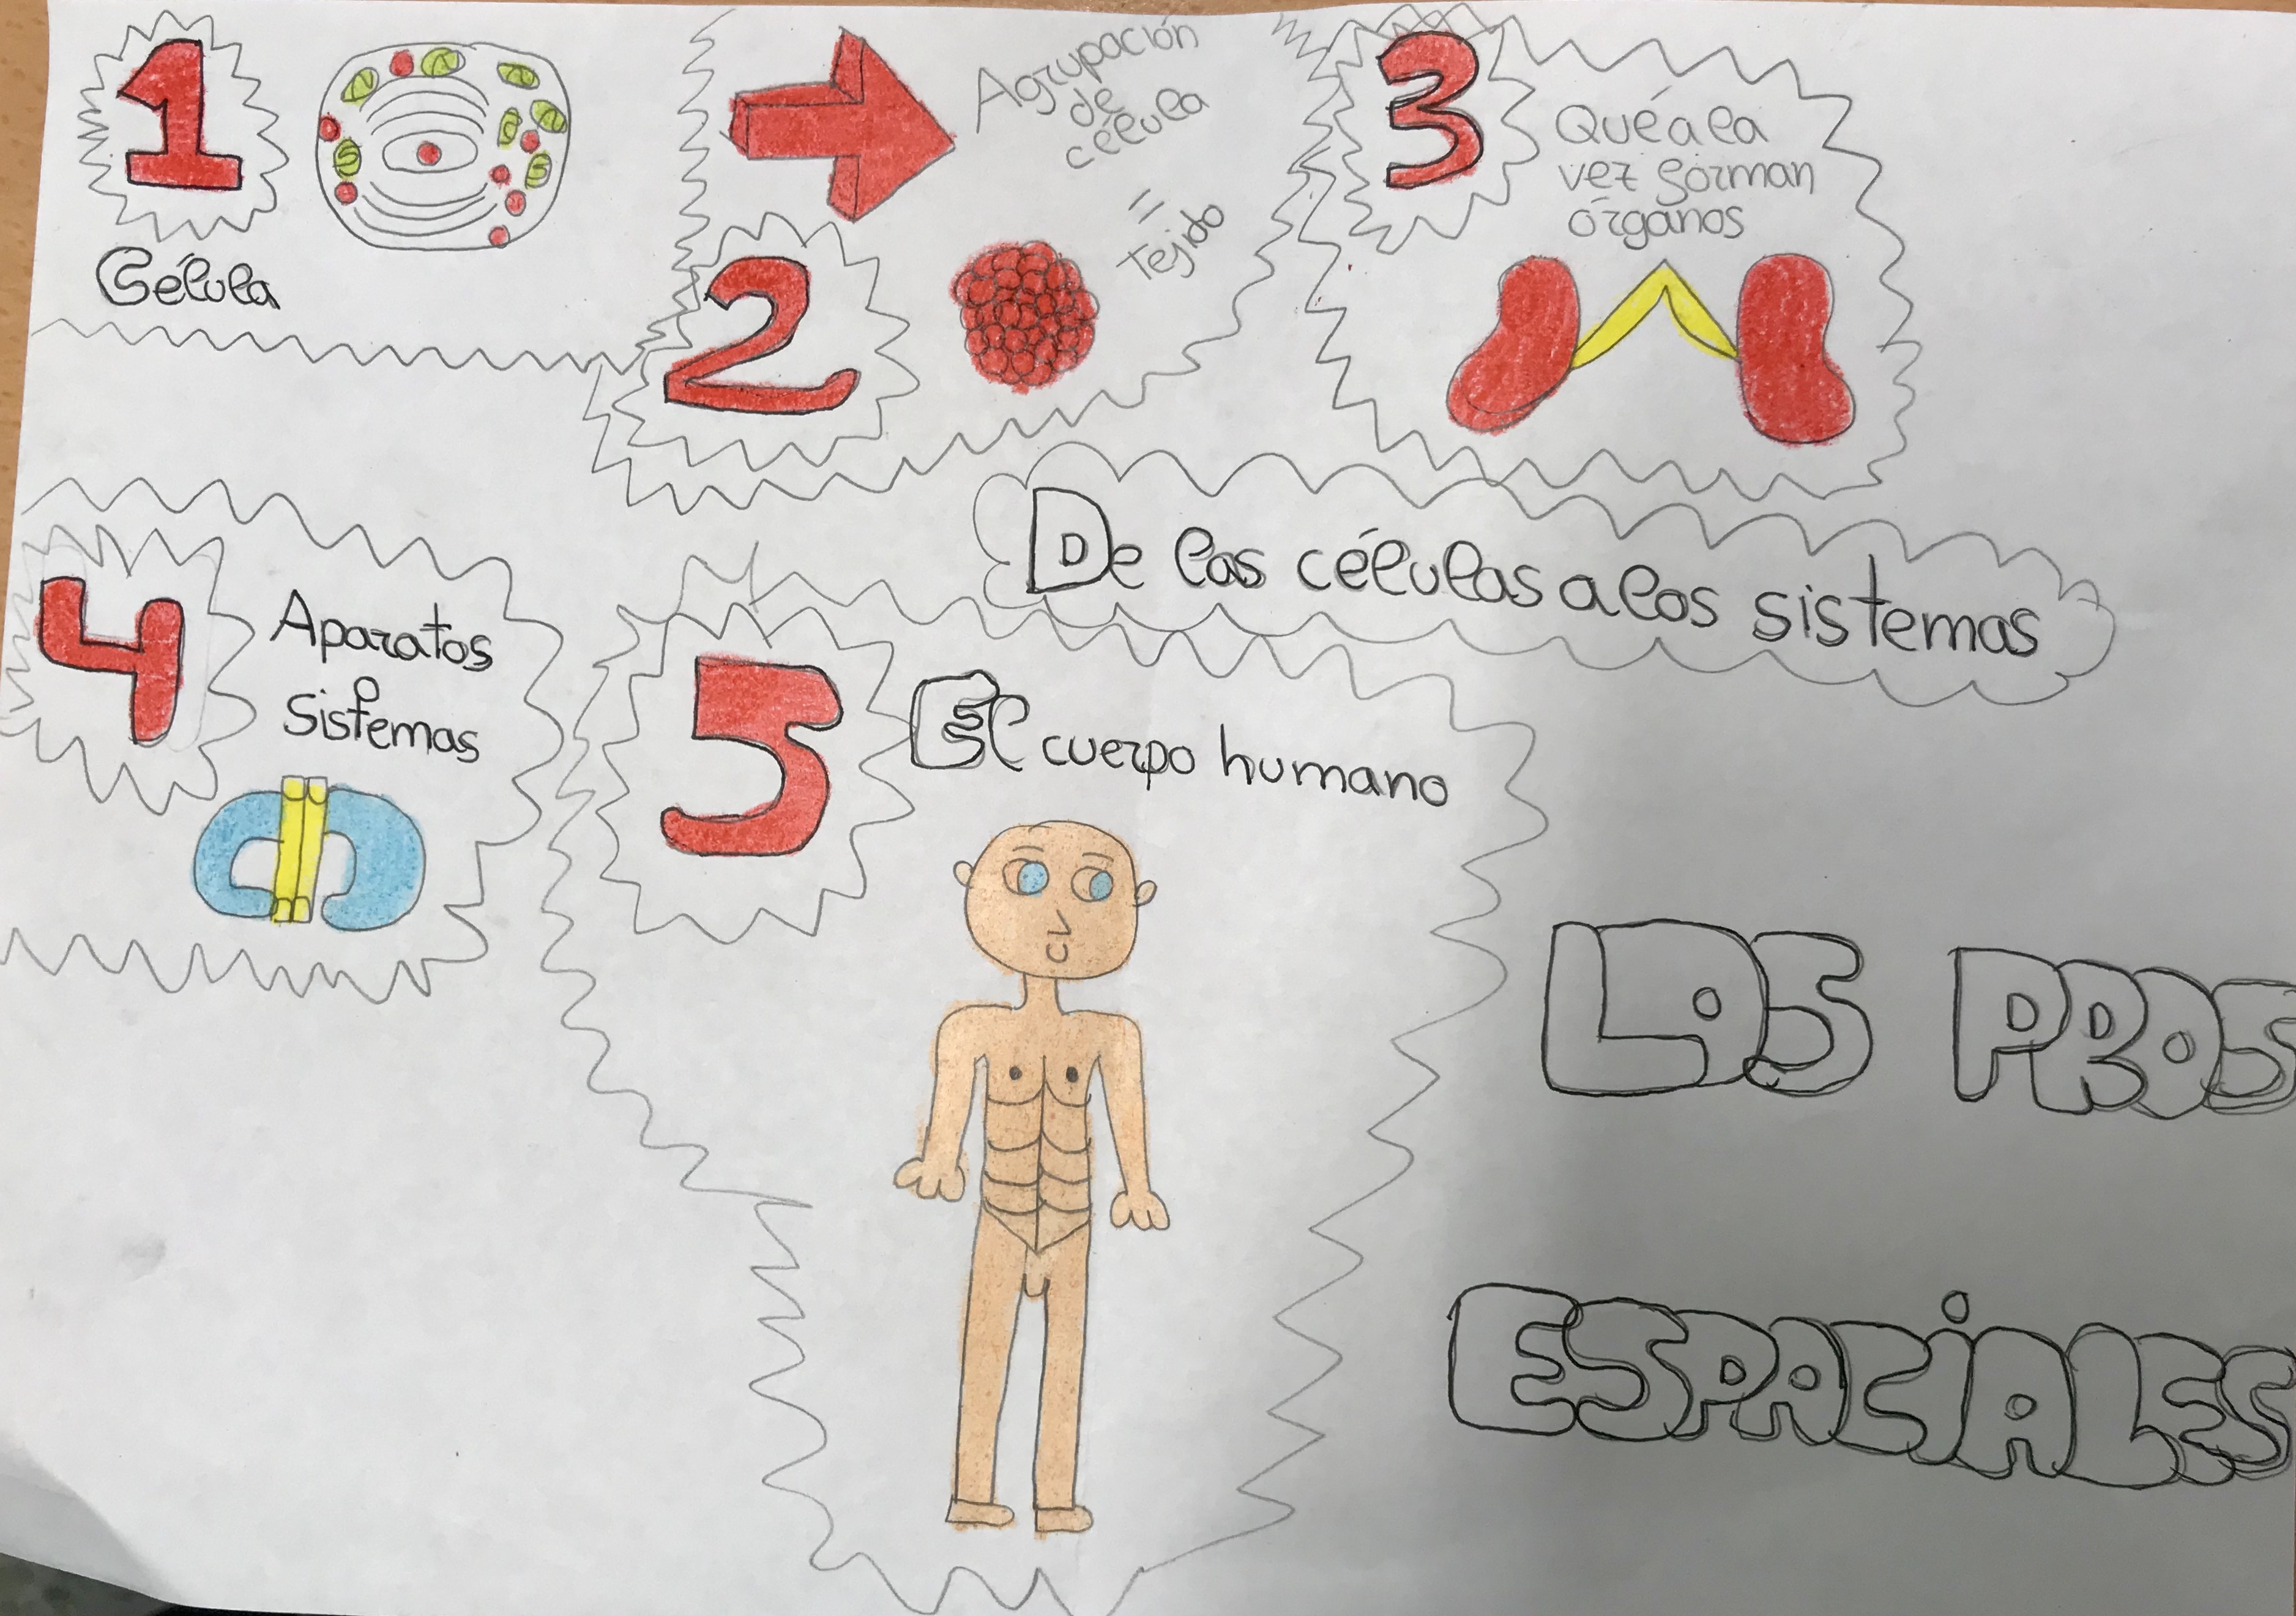 1
Célula
2
Agrupación
de
célula
=
Tejido
3
Qué a la
vez forman
órganos
De las células a los sistemas
4
Aparatos
Sistemas
5
El cuerpo humano
LAS PROS
ESPACIALES